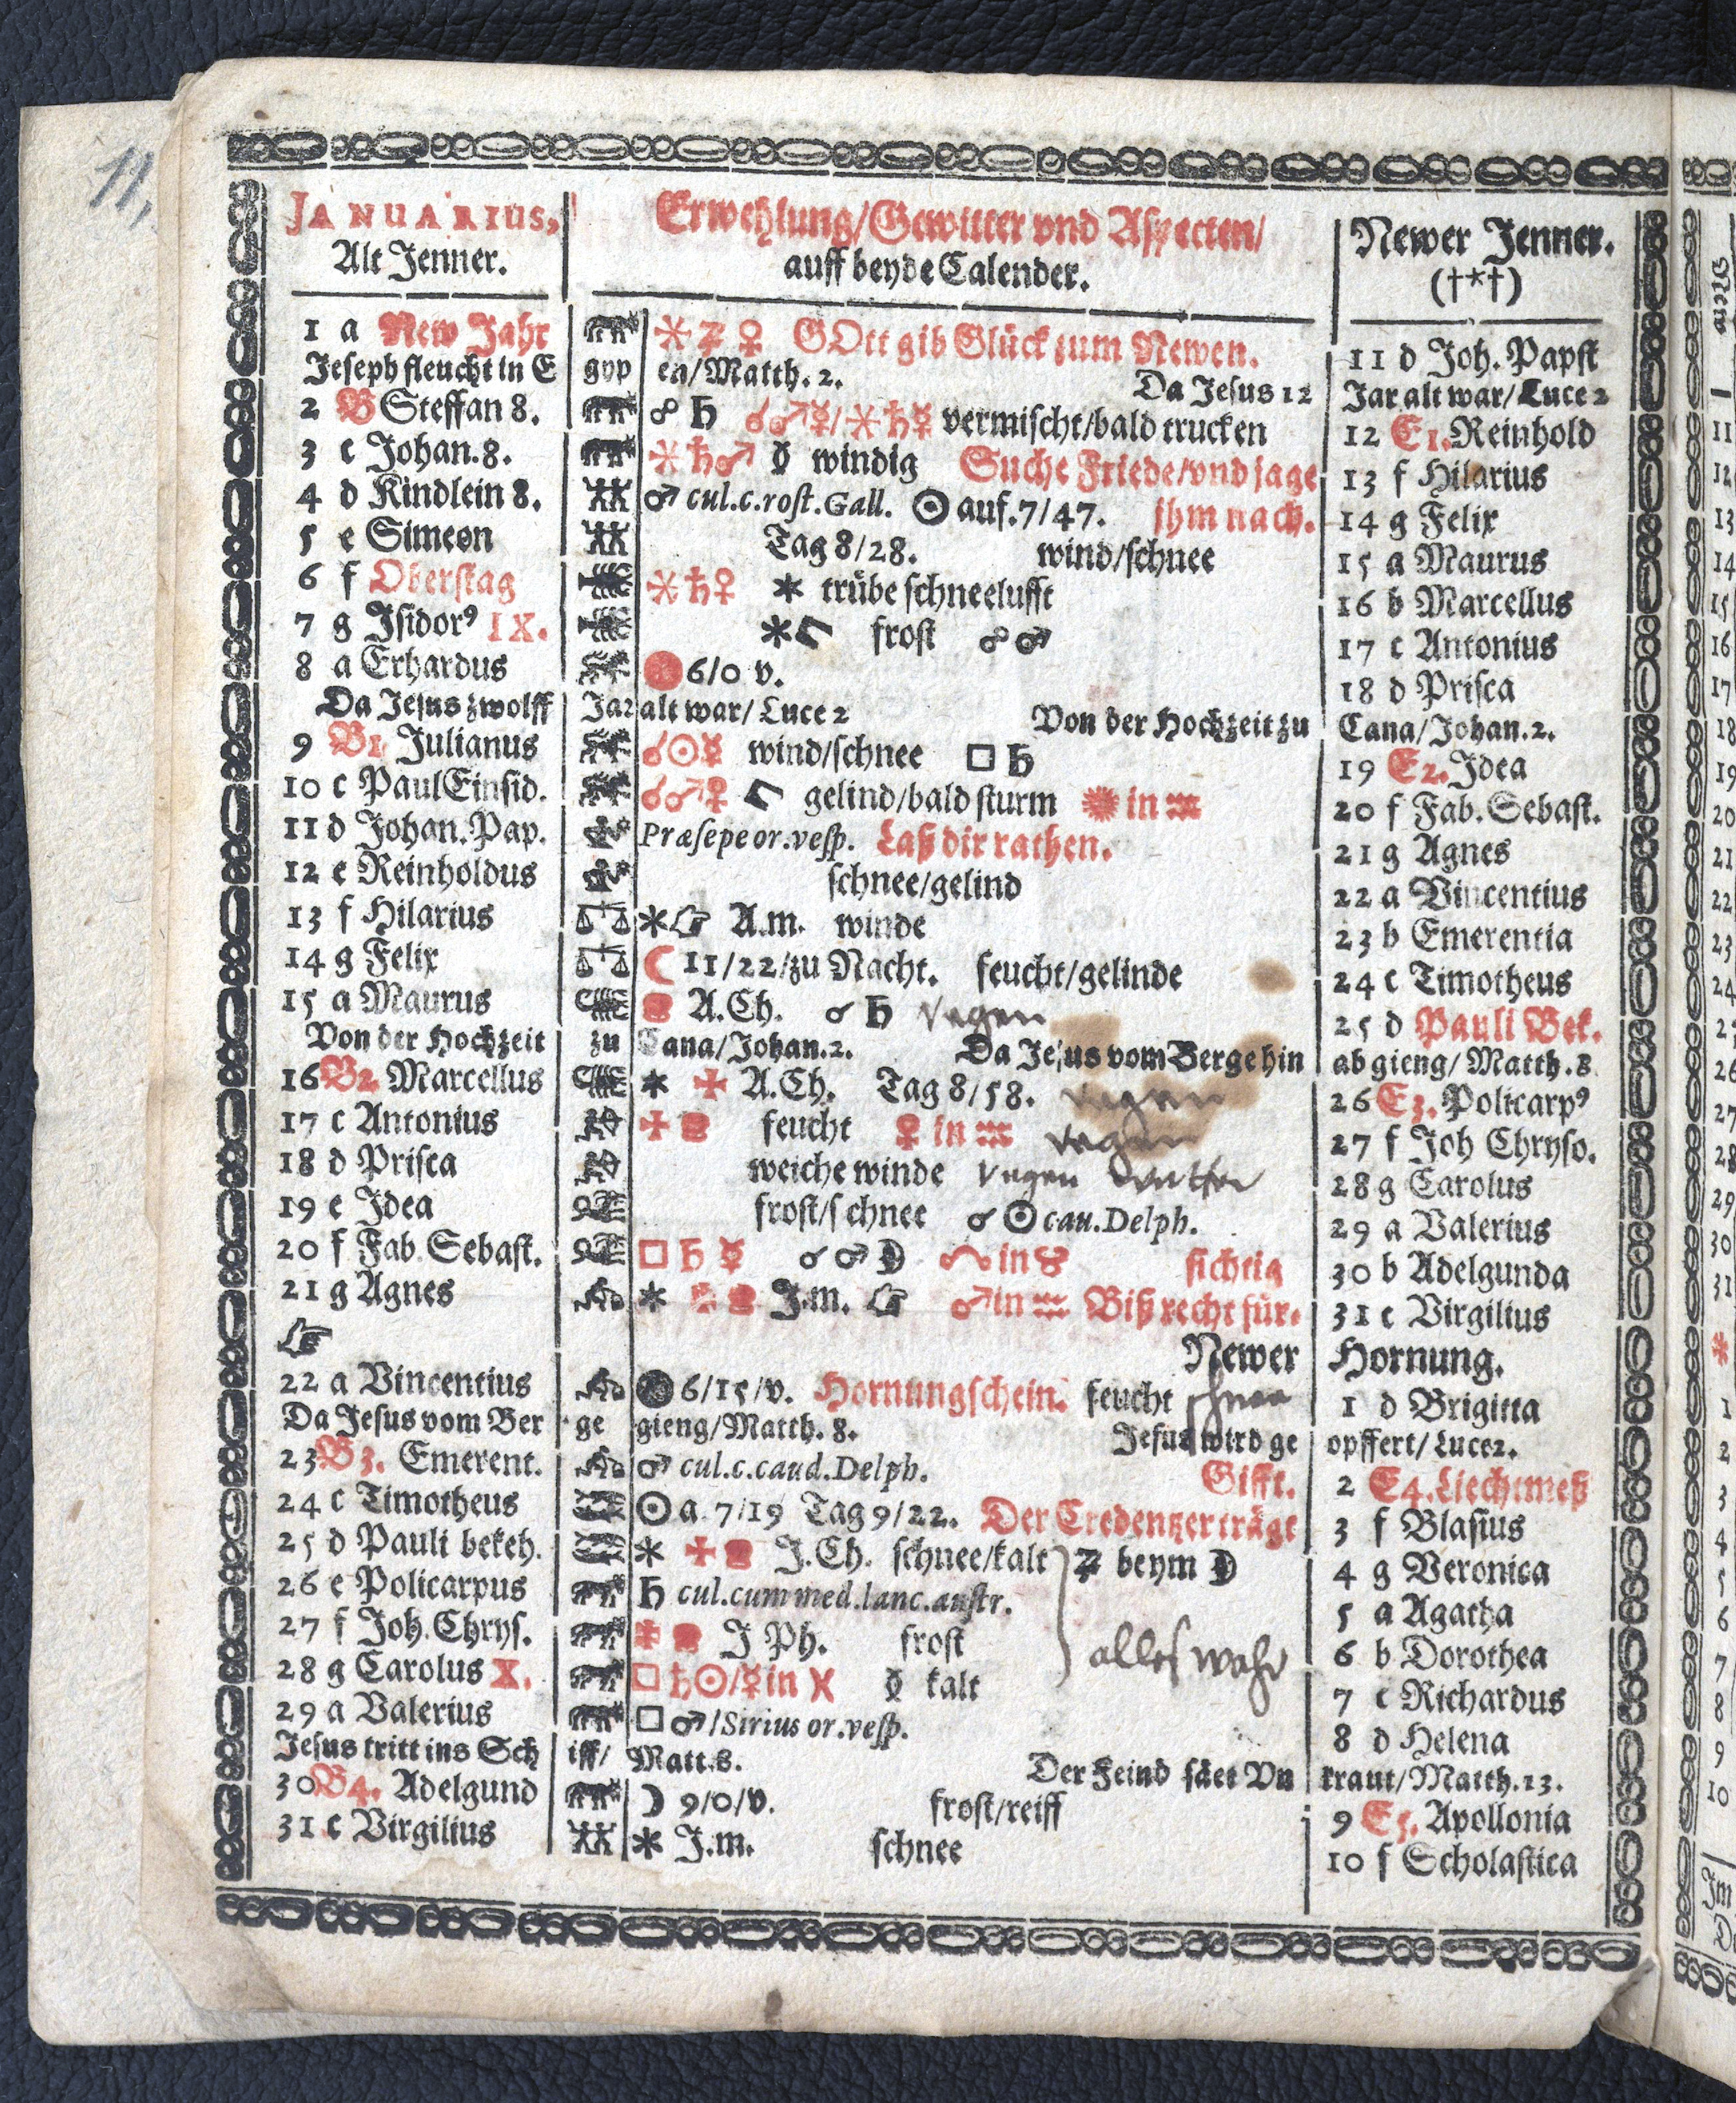 11,
JANUARIUS,
Alt Jenner.
Erwehlung/Gewitter vnd Aspecten/
auff beyde Calender.
Newer Jenner.
(†*†)
1 a New Jahr ⚹ ♃ ♀ GOtt gib Glück zum Newen. 11 d Joh. Papst
Joseph fleucht in E gyp en/Matth. 2. Da Jesus 12 Jar alt war/Luce 2
2 B Steffan 8. ☍ ♄ ☌♂☿/⚹♄☿ vermischt/bald trucken 12 E1. Reinhold
3 c Johan. 8. ⚹♄♂ windig Suche Friede/vnd jage 13 f Hilarius
4 d Kindlein 8. ♂ cul.c.rost.Gall. ☉ auf.7/47. jhm nach. 14 g Felix
5 e Simeon Tag 8/28. wind/schnee 15 a Maurus
6 f Oberstag ⚹♄♀ * trübe schneelufft 16 b Marcellus
7 g Isidor9 IX. * frost ☍ ♂ 17 c Antonius
8 a Erhardus 6/0 v. 18 d Prisca
Da Jesus zwolff Jar alt war/ Luce 2 Von der Hochzeit zu Cana/Johan. 2.
9 B1 Julianus ☌☉☿ wind/schnee □ ♄ 19 E2. Idea
10 c Paul Einsid. ☌♂♀ gelind/bald sturm in ♒ 20 f Fab. Sebast.
11 d Johan. Pap. Præsepe or. vesp. Laß dir rathen. 21 g Agnes
12 e Reinholdus schnee/gelind 22 a Vincentius
13 f Hilarius *☞ A.m. winde 23 b Emerentia
14 g Felix ☾ 11/22/zu Nacht. feucht/gelinde 24 c Timotheus
15 a Maurus A.Ch. ☌ ♄ regen 25 d Pauli Bek.
Von der Hochzeit zu Cana/Johan. 2. Da Jesus vom Berge hin ab gieng/ Matth. 8
16 B2 Marcellus * A.Ch. Tag 8/58. regen 26 E3. Policarp9
17 c Antonius feucht ♀ in ♒ regen 27 f Joh Chryso.
18 d Prisca weiche winde regen 28 g Carolus
19 e Idea frost/schnee ☌ ☉ cau. Delph. 29 a Valerius
20 f Fab. Sebast. □ ♄ ☿ ☌ ♂ ☽ in ♉ sichtig 30 b Adelgunda
21 g Agnes * J.m. ☞ ♂ in ♒ Biß recht für- 31 c Virgilius
☞ Newer Hornung.
22 a Vincentius 6/15/v. Hornungschein. feucht schnee 1 d Brigitta
Da Jesus vom Ber ge gieng/Matth. 8. Jesus wird ge opffert/Luce 2.
23 B3. Emerent. ♂ cul.c.caud. Delph. Gifft. 2 E4. Liechtmeß
24 c Timotheus ☉ a. 7/19 Tag 9/22. Der Credentzer trägt 3 f Blasius
25 d Pauli bekeh. * J.Ch. schnee/kalt ♃ beym ☽ 4 g Veronica
26 e Policarpus ♄ cul.cum med.lanc.austr. 5 a Agatha
27 f Joh. Chrys. J Ph. frost alles wahr 6 b Dorothea
28 g Carolus X. □ ♄☉/☿ in ♓ kalt 7 c Richardus
29 a Valerius □ ♂/Sirius or. vesp. 8 d Helena
Jesus tritt ins Sch iff/ Matt. 8. Der Feind säet Vn kraut/Matth. 13.
30 B4. Adelgund ☽ 9/0/v. frost/reiff 9 E5. Apollonia
31 c Virgilius * J.m. schnee 10 f Scholastica